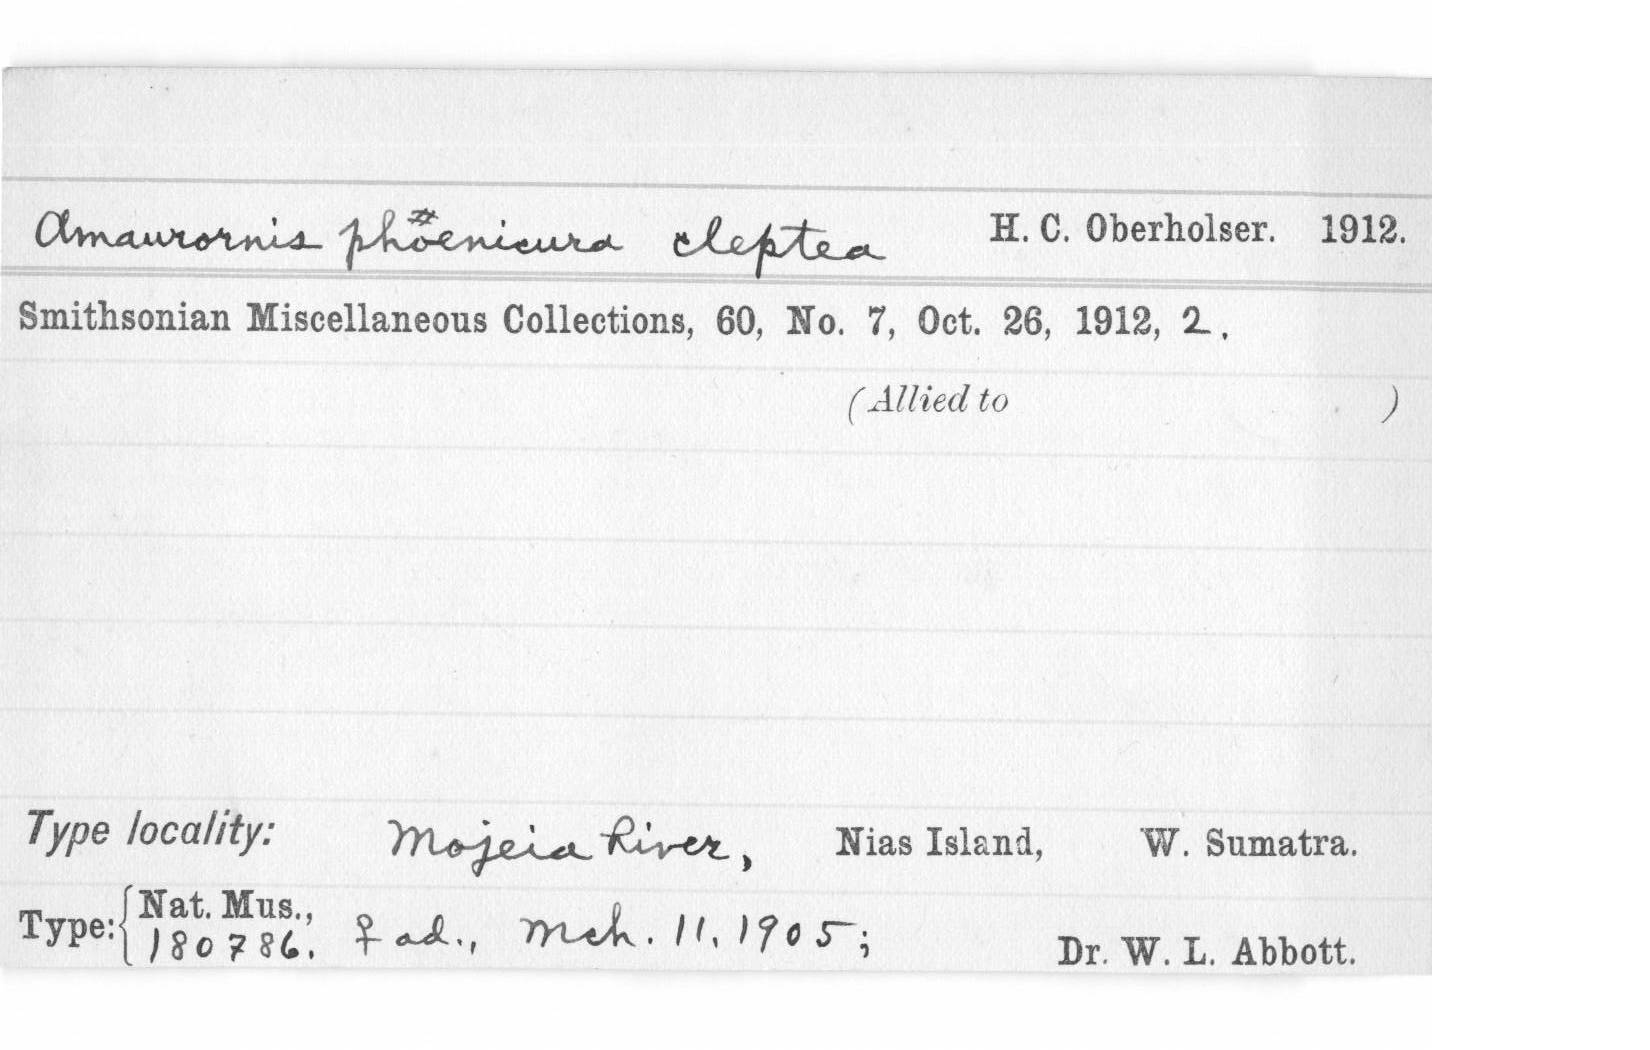 Amaurornis phöenicura cleptea H. C. Oberholser. 1912.
Smithsonian Miscellaneous Collections, 60, No. 7, Oct. 26, 1912, 2.
(Allied to )
Type locality: Mojeia River, Nias Island, W. Sumatra.
Type: { Nat. Mus.,
180786. ♀ ad., Mch. 11, 1905; Dr. W. L. Abbott.